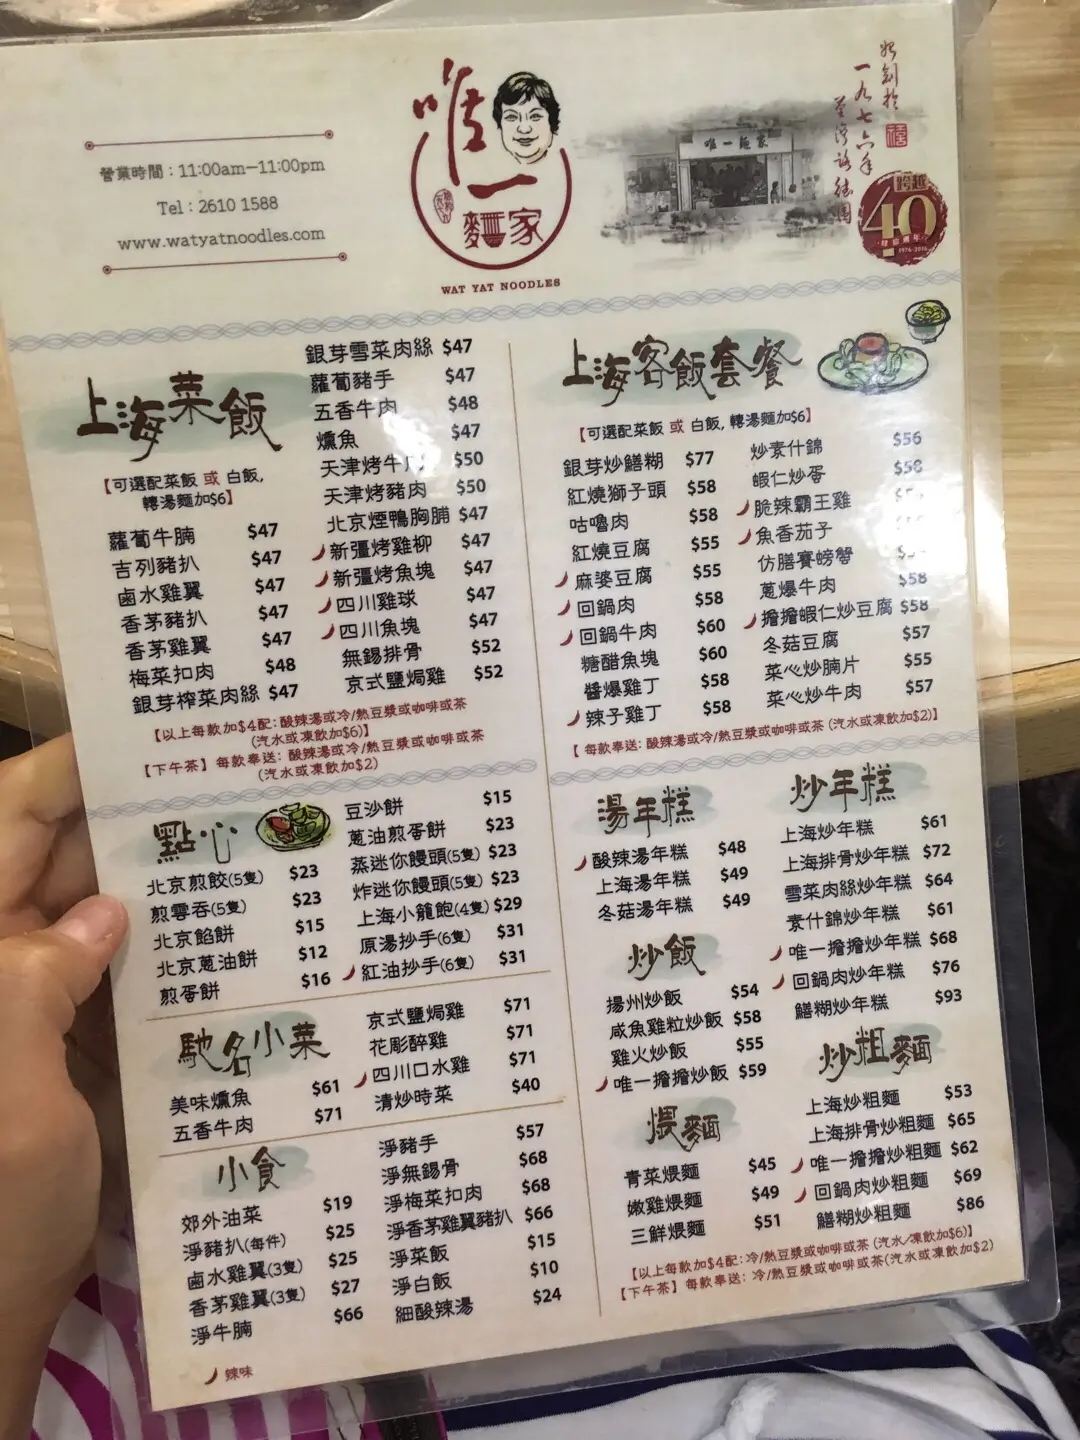 唯一
麵家
WAT YAT NOODLES
營業時間：11:00am—11:00pm
Tel：2610 1588
www.watyatnoodles.com
唯一麵家
始創於
一九七六年
荃灣路德圍
跨越
40
1976-2016
上海菜飯
【可選配菜飯 或 白飯,
轉湯麵加$6】
蘿蔔牛腩 $47
吉列豬扒 $47
鹵水雞翼 $47
香茅豬扒 $47
香茅雞翼 $47
梅菜扣肉 $48
銀芽榨菜肉絲 $47
銀芽雪菜肉絲 $47
蘿蔔豬手 $47
五香牛肉 $48
燻魚 $47
天津烤牛肉 $50
天津烤豬肉 $50
北京煙鴨胸脯 $47
新疆烤雞柳 $47
新疆烤魚塊 $47
四川雞球 $47
四川魚塊 $47
無錫排骨 $52
京式鹽焗雞 $52
【以上每款加$4配: 酸辣湯或冷/熱豆漿或咖啡或茶
(汽水或凍飲加$6)】
【下午茶】每款奉送: 酸辣湯或冷/熱豆漿或咖啡或茶
(汽水或凍飲加$2)
點心
北京煎餃(5隻) $23
煎雲吞(5隻) $23
北京餡餅 $15
北京蔥油餅 $12
煎蛋餅 $16
豆沙餅 $15
蔥油煎蛋餅 $23
蒸迷你饅頭(5隻) $23
炸迷你饅頭(5隻) $23
上海小籠飽(4隻) $29
原湯抄手(6隻) $31
紅油抄手(6隻) $31
馳名小菜
美味燻魚 $61
五香牛肉 $71
京式鹽焗雞 $71
花彫醉雞 $71
四川口水雞 $71
清炒時菜 $40
小食
郊外油菜 $19
淨豬扒(每件) $25
鹵水雞翼(3隻) $25
香茅雞翼(3隻) $27
淨牛腩 $66
淨豬手 $57
淨無錫骨 $68
淨梅菜扣肉 $68
淨香茅雞翼豬扒 $66
淨菜飯 $15
淨白飯 $10
細酸辣湯 $24
辣味
上海客飯套餐
【可選配菜飯 或 白飯, 轉湯麵加$6】
銀芽炒鱔糊 $77
紅燒獅子頭 $58
咕嚕肉 $58
紅燒豆腐 $55
麻婆豆腐 $55
回鍋肉 $58
回鍋牛肉 $60
糖醋魚塊 $60
醬爆雞丁 $58
辣子雞丁 $58
炒素什錦 $56
蝦仁炒蛋 $58
脆辣霸王雞
魚香茄子
仿膳賽螃蟹
蔥爆牛肉 $58
擔擔蝦仁炒豆腐 $58
冬菇豆腐 $57
菜心炒腩片 $55
菜心炒牛肉 $57
【 每款奉送: 酸辣湯或冷/熱豆漿或咖啡或茶 (汽水或凍飲加$2)】
湯年糕
酸辣湯年糕 $48
上海湯年糕 $49
冬菇湯年糕 $49
炒飯
揚州炒飯 $54
咸魚雞粒炒飯 $58
雞火炒飯 $55
唯一擔擔炒飯 $59
煨麵
青菜煨麵 $45
嫩雞煨麵 $49
三鮮煨麵 $51
炒年糕
上海炒年糕 $61
上海排骨炒年糕 $72
雪菜肉絲炒年糕 $64
素什錦炒年糕 $61
唯一擔擔炒年糕 $68
回鍋肉炒年糕 $76
鱔糊炒年糕 $93
炒粗麵
上海炒粗麵 $53
上海排骨炒粗麵 $65
唯一擔擔炒粗麵 $62
回鍋肉炒粗麵 $69
鱔糊炒粗麵 $86
【以上每款加$4配: 冷/熱豆漿或咖啡或茶 (汽水/凍飲加$6)】
【下午茶】每款奉送: 冷/熱豆漿或咖啡或茶(汽水或凍飲加$2)